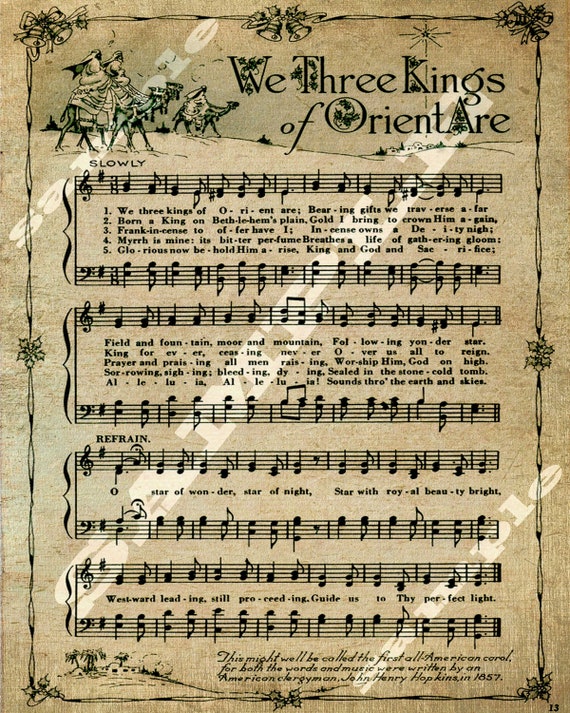 We Three Kings
of Orient Are
SLOWLY
1. We three kings of O - ri - ent are; Bear - ing gifts we trav - erse a - far
2. Born a King on Beth - le - hem's plain, Gold I bring to crown Him a - gain,
3. Frank - in - cense to of - fer have I; In - cense owns a De - i - ty nigh;
4. Myrrh is mine: its bit - ter per - fume Breathes a life of gath - er - ing gloom;
5. Glo - rious now be - hold Him a - rise, King and God and Sac - ri - fice;
Field and foun - tain, moor and mountain, Fol - low - ing yon - der star.
King for ev - er, ceas - ing nev - er O - ver us all to reign.
Prayer and prais - ing all men rais - ing, Wor - ship Him, God on high.
Sor - rowing, sigh - ing; bleed - ing, dy - ing, Sealed in the stone - cold tomb.
Al - le - lu - ia, Al - le - lu - ia! Sounds thro' the earth and skies.
REFRAIN.
O star of won - der, star of night, Star with roy - al beau - ty bright,
West - ward lead - ing, still pro - ceed - ing, Guide us to Thy per - fect light.
This might well be called the first all-American carol,
for both the words and music were written by an
American clergyman, John Henry Hopkins, in 1857.
13
sample
SAMPLE
sample